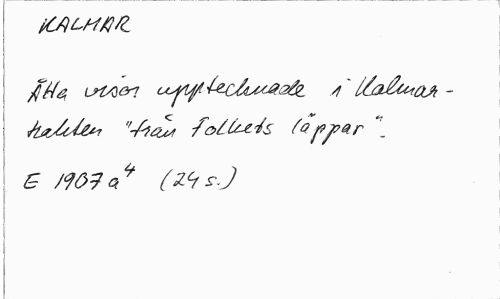 KALMAR
Åtta visor upptecknade i Kalmar-
trakten "från folkets läppar".
E 1907 a⁴ (24 s.)